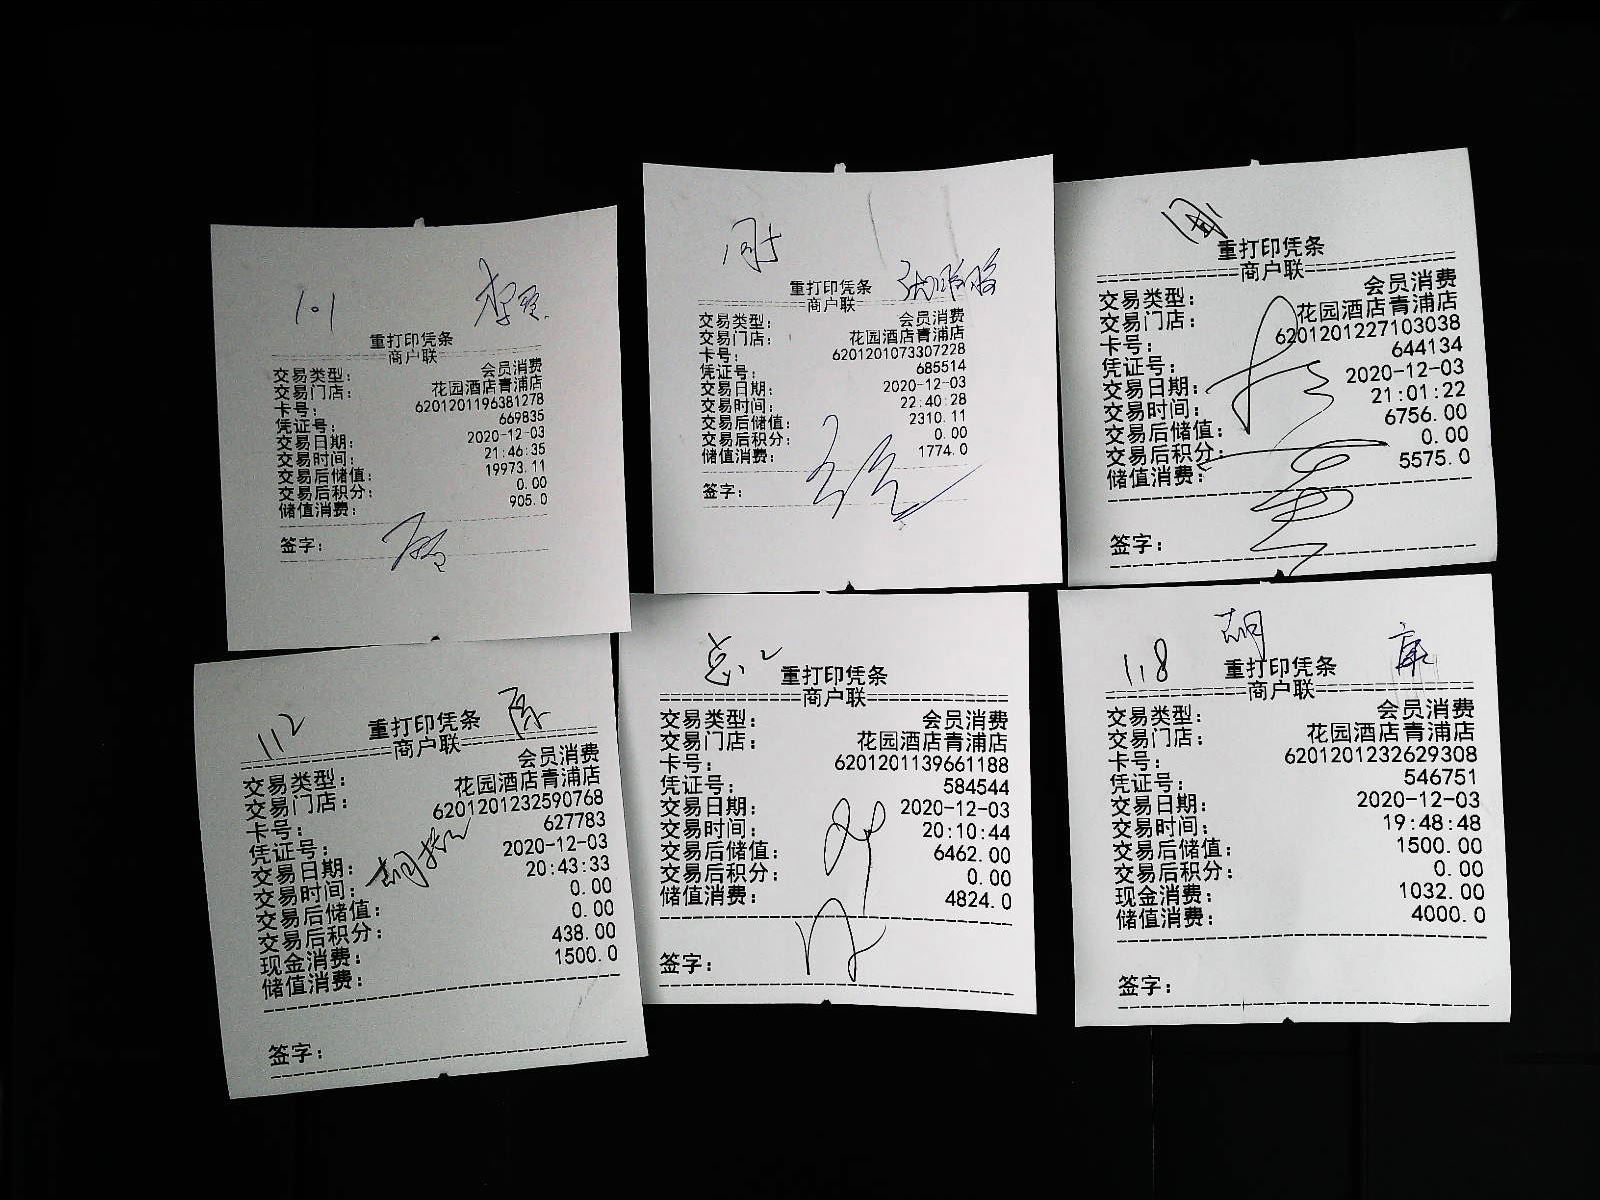 101
重打印凭条
商户联
交易类型： 会员消费
交易门店： 花园酒店青浦店
卡号： 6201201196381278
凭证号： 669835
交易日期： 2020-12-03
交易时间： 21:46:35
交易后储值： 19973.11
交易后积分： 0.00
储值消费： 905.0
签字：
重打印凭条
商户联
交易类型： 会员消费
交易门店： 花园酒店青浦店
卡号： 6201201073307228
凭证号： 685514
交易日期： 2020-12-03
交易时间： 22:40:28
交易后储值： 2310.11
交易后积分： 0.00
储值消费： 1774.0
签字：
重打印凭条
商户联
交易类型： 会员消费
交易门店： 花园酒店青浦店
卡号： 6201201227103038
凭证号： 644134
交易日期： 2020-12-03
交易时间： 21:01:22
交易后储值： 6756.00
交易后积分： 0.00
储值消费： 5575.0
签字：
112
重打印凭条
商户联
交易类型： 会员消费
交易门店： 花园酒店青浦店
卡号： 6201201232590768
凭证号： 627783
交易日期： 2020-12-03
交易时间： 20:43:33
交易后储值： 0.00
交易后积分： 0.00
现金消费： 438.00
储值消费： 1500.0
签字：
重打印凭条
商户联
交易类型： 会员消费
交易门店： 花园酒店青浦店
卡号： 6201201139661188
凭证号： 584544
交易日期： 2020-12-03
交易时间： 20:10:44
交易后储值： 6462.00
交易后积分： 0.00
储值消费： 4824.0
签字：
118 胡
重打印凭条
商户联
交易类型： 会员消费
交易门店： 花园酒店青浦店
卡号： 6201201232629308
凭证号： 546751
交易日期： 2020-12-03
交易时间： 19:48:48
交易后储值： 1500.00
交易后积分： 0.00
现金消费： 1032.00
储值消费： 4000.0
签字：